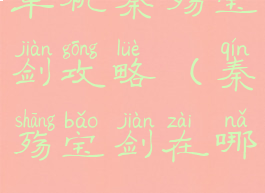 单机秦殇宝
jiàn gōng lüè qín
剑攻略（秦
shāng bǎo jiàn zài nǎ
殇宝剑在哪